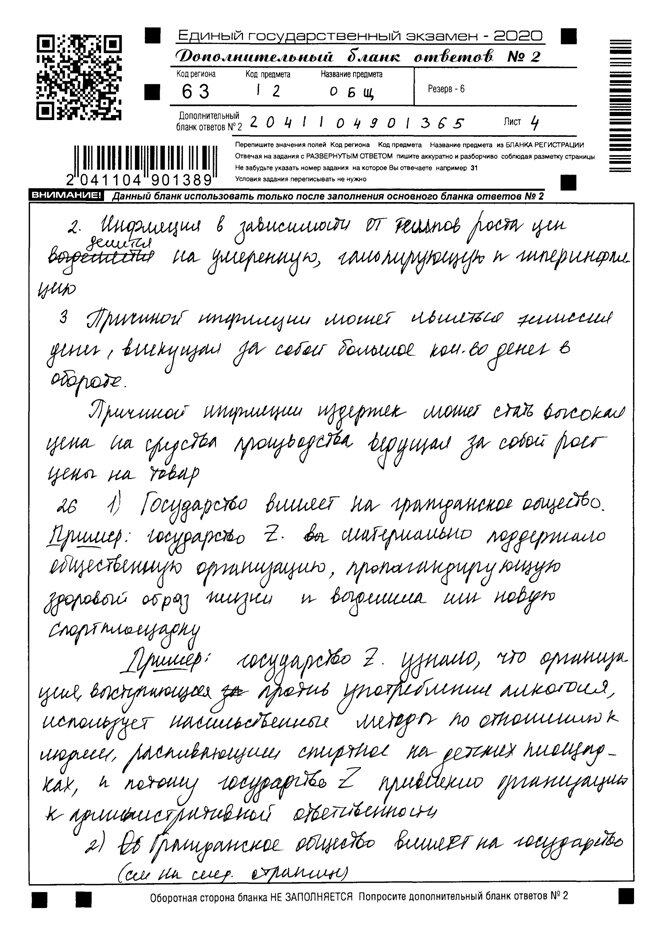 Единый государственный экзамен - 2020
Дополнительный бланк ответов № 2
Код региона Код предмета Название предмета
63 12 ОБЩ Резерв - 6
Дополнительный бланк ответов № 2 2041104901365 Лист 4
Перепишите значения полей Код региона Код предмета Название предмета из БЛАНКА РЕГИСТРАЦИИ
Отвечая на задания с РАЗВЕРНУТЫМ ОТВЕТОМ пишите аккуратно и разборчиво соблюдая разметку страницы
Не забудьте указать номер задания на которое Вы отвечаете например 31
Условия задания переписывать не нужно
2 041104 901389
ВНИМАНИЕ! Данный бланк использовать только после заполнения основного бланка ответов № 2
2. Инфляция в зависимости от темпов роста цен
делится
выделяется на умеренную, галопирующую и гиперинфля
цию
3 Причиной инфляции может являться эмиссия
денег, влекущая за собой большое кол.во денег в
обороте.
Причиной инфляции издержек может стать высокая
цена на средства производства ведущая за собой рост
цены на товар
26 1) Государство влияет на гражданское общество.
Пример: государство Z. материально поддержало
общественную организацию, пропагандирующую
здоровый образ жизни и выделила им новую
спортплощадку
Пример: государство Z. узнало, что организа
ция, выступающая за против употребления алкоголя,
использует насильственные методы по отношению к
людям, распивающим спиртное на детских площад-
ках, и потому государство Z привлекло организацию
к административной ответственности
2) Гражданское общество влияет на государство
(см на след. странице)
Оборотная сторона бланка НЕ ЗАПОЛНЯЕТСЯ Попросите дополнительный бланк ответов № 2